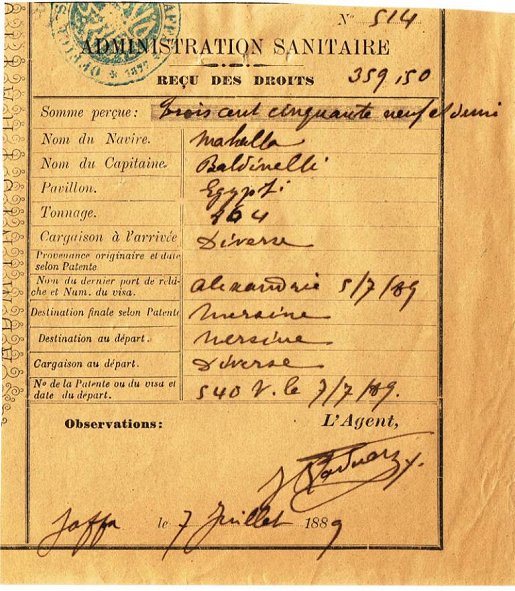 No 514
ADMINISTRATION SANITAIRE
REÇU DES DROITS 359,50
Somme perçue: Trois cent cinquante neuf et demi
Nom du Navire. Mahalla
Nom du Capitaine. Baldinelli
Pavillon. Egypti
Tonnage. 464
Cargaison à l'arrivée Diverse
Provenance originaire et date
selon Patente
Nom du dernier port de relâ-
che et Num. du visa. Alexandrie 5/7/89
Destination finale selon Patente Mersine
Destination au départ. Mersine
Cargaison au départ. Diverse
No de la Patente ou du visa et
date du départ. 540 V. le 7/7/89.
Observations: L'Agent,
Jaffa le 7 Juillet 1889